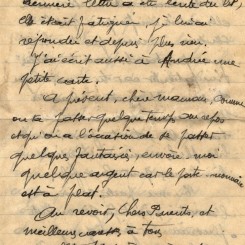 dernière lettre a été écrite du lit,
elle était fatiguée, je lui ai
répondu et depuis plus rien.
J'ai écrit aussi à Andrée une
petite carte.
A présent, chère maman, comme
on va passer quelque temps au repos
et qu'on a l'occasion de se passer
quelques fantaisies, envoie moi
quelque argent car le porte-monnaie
est à plat.
Au revoir, Chers Parents, et
meilleures caresses à tous